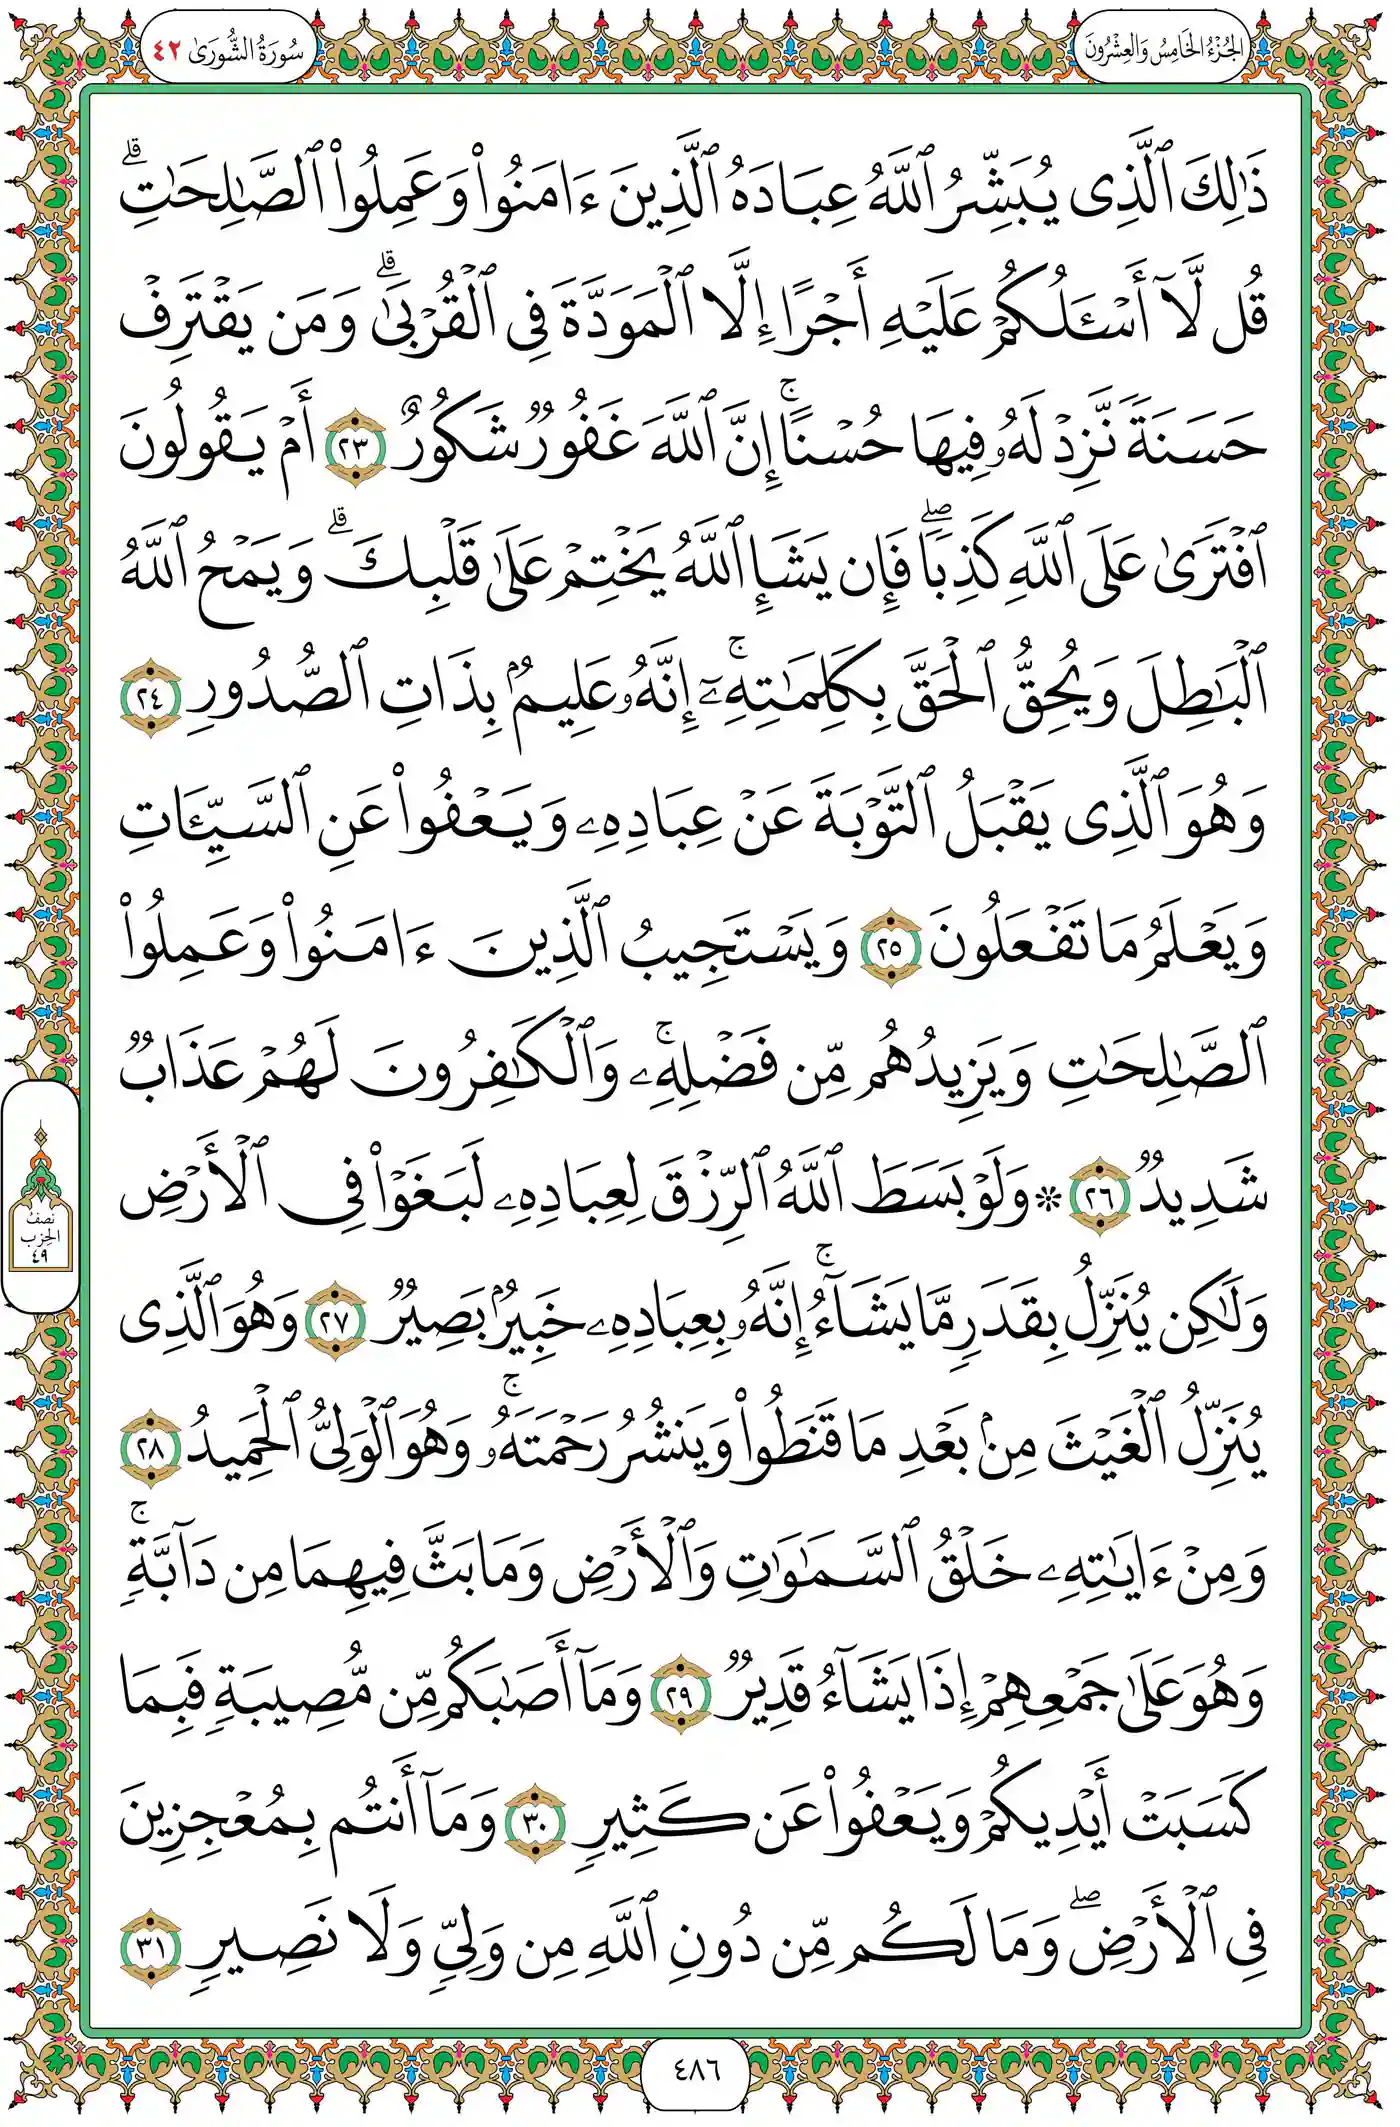 الجُزْءُ الخَامِسُ وَالعِشْرُونَ
سُورَةُ الشُّورَىٰ ٤٢
ذَٰلِكَ ٱلَّذِى يُبَشِّرُ ٱللَّهُ عِبَادَهُ ٱلَّذِينَ ءَامَنُوا۟ وَعَمِلُوا۟ ٱلصَّـٰلِحَـٰتِ ۗ
قُل لَّآ أَسْـَٔلُكُمْ عَلَيْهِ أَجْرًا إِلَّا ٱلْمَوَدَّةَ فِى ٱلْقُرْبَىٰ ۗ وَمَن يَقْتَرِفْ
حَسَنَةً نَّزِدْ لَهُۥ فِيهَا حُسْنًا ۚ إِنَّ ٱللَّهَ غَفُورٌ شَكُورٌ ٢٣ أَمْ يَقُولُونَ
ٱفْتَرَىٰ عَلَى ٱللَّهِ كَذِبًا ۖ فَإِن يَشَإِ ٱللَّهُ يَخْتِمْ عَلَىٰ قَلْبِكَ ۗ وَيَمْحُ ٱللَّهُ
ٱلْبَـٰطِلَ وَيُحِقُّ ٱلْحَقَّ بِكَلِمَـٰتِهِۦٓ ۚ إِنَّهُۥ عَلِيمٌۢ بِذَاتِ ٱلصُّدُورِ ٢٤
وَهُوَ ٱلَّذِى يَقْبَلُ ٱلتَّوْبَةَ عَنْ عِبَادِهِۦ وَيَعْفُوا۟ عَنِ ٱلسَّيِّـَٔاتِ
وَيَعْلَمُ مَا تَفْعَلُونَ ٢٥ وَيَسْتَجِيبُ ٱلَّذِينَ ءَامَنُوا۟ وَعَمِلُوا۟
ٱلصَّـٰلِحَـٰتِ وَيَزِيدُهُم مِّن فَضْلِهِۦ ۚ وَٱلْكَـٰفِرُونَ لَهُمْ عَذَابٌ
شَدِيدٌ ٢٦ ۞ وَلَوْ بَسَطَ ٱللَّهُ ٱلرِّزْقَ لِعِبَادِهِۦ لَبَغَوْا۟ فِى ٱلْأَرْضِ
وَلَـٰكِن يُنَزِّلُ بِقَدَرٍ مَّا يَشَآءُ ۚ إِنَّهُۥ بِعِبَادِهِۦ خَبِيرٌۢ بَصِيرٌ ٢٧ وَهُوَ ٱلَّذِى
يُنَزِّلُ ٱلْغَيْثَ مِنۢ بَعْدِ مَا قَنَطُوا۟ وَيَنشُرُ رَحْمَتَهُۥ ۚ وَهُوَ ٱلْوَلِىُّ ٱلْحَمِيدُ ٢٨
وَمِنْ ءَايَـٰتِهِۦ خَلْقُ ٱلسَّمَـٰوَٰتِ وَٱلْأَرْضِ وَمَا بَثَّ فِيهِمَا مِن دَآبَّةٍ ۚ
وَهُوَ عَلَىٰ جَمْعِهِمْ إِذَا يَشَآءُ قَدِيرٌ ٢٩ وَمَآ أَصَـٰبَكُم مِّن مُّصِيبَةٍ فَبِمَا
كَسَبَتْ أَيْدِيكُمْ وَيَعْفُوا۟ عَن كَثِيرٍ ٣٠ وَمَآ أَنتُم بِمُعْجِزِينَ
فِى ٱلْأَرْضِ ۖ وَمَا لَكُم مِّن دُونِ ٱللَّهِ مِن وَلِىٍّ وَلَا نَصِيرٍ ٣١
نصْفُ
الحِزْب
٤٩
٤٨٦